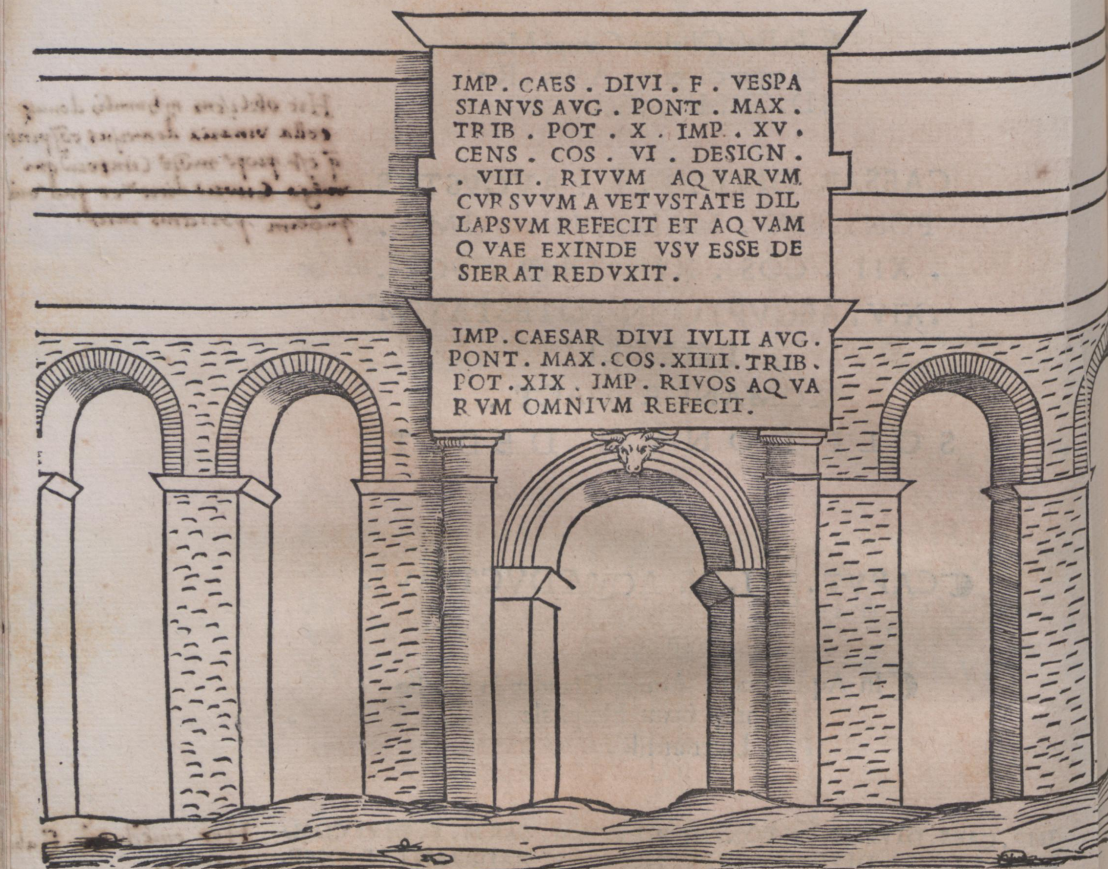 IMP. CAES . DIVI . F . VESPA
SIANVS AVG . PONT . MAX .
TRIB . POT . X . IMP. . XV .
CENS . COS . VI . DESIGN .
. VIII . RIVVM AQVARVM
CVRSVVM A VETVSTATE DIL
LAPSVM REFECIT ET AQVAM
QVAE EXINDE VSV ESSE DE
SIERAT REDVXIT .
IMP. CAESAR DIVI IVLII AVG.
PONT. MAX.COS.XIIII.TRIB.
POT.XIX. IMP. RIVOS AQVA
RVM OMNIVM REFECIT.